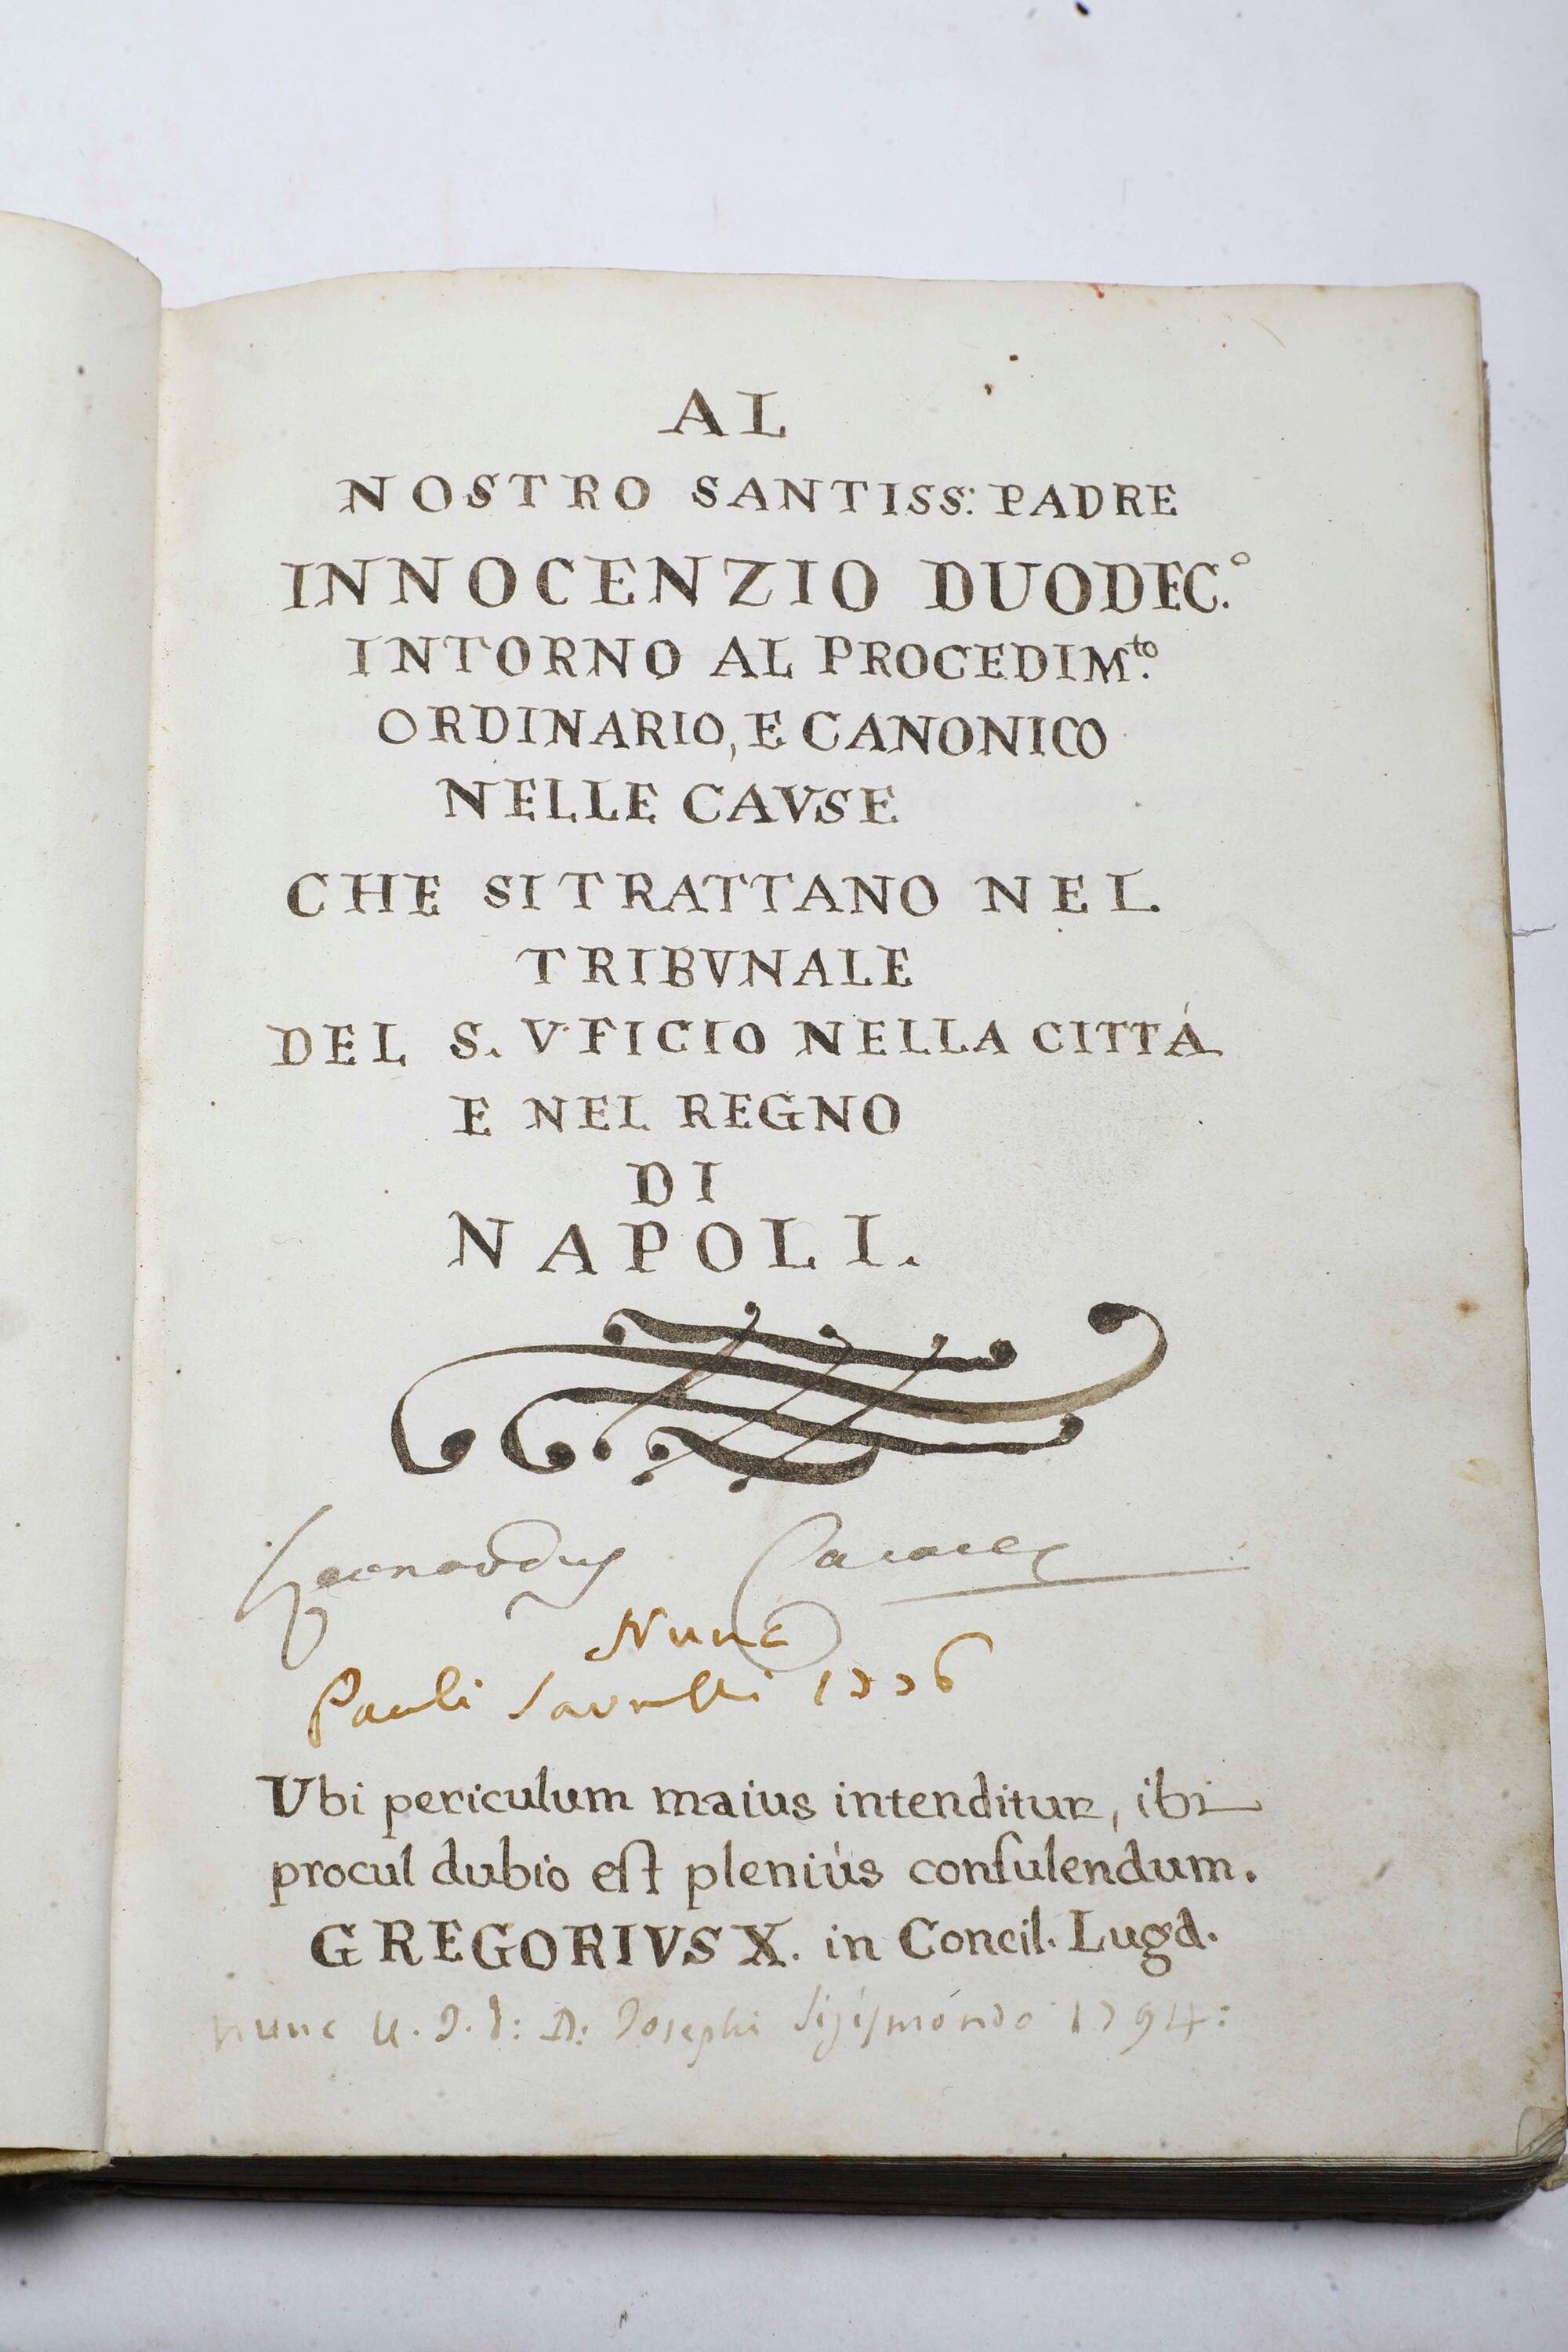 AL
NOSTRO SANTISS: PADRE
INNOCENZIO DUODEC.º
INTORNO AL PROCEDIM.to
ORDINARIO, E CANONICO
NELLE CAVSE
CHE SI TRATTANO NEL
TRIBVNALE
DEL S. VFICIO NELLA CITTÁ
E NEL REGNO
DI
NAPOLI.
Nunc
Pauli 1776
Vbi periculum maius intenditur, ibi
procul dubio eſt pleniùs conſulendum.
GREGORIVS X. in Concil. Lugd.
nunc U. J. D: D: Josephi Sigismóndo 1794: